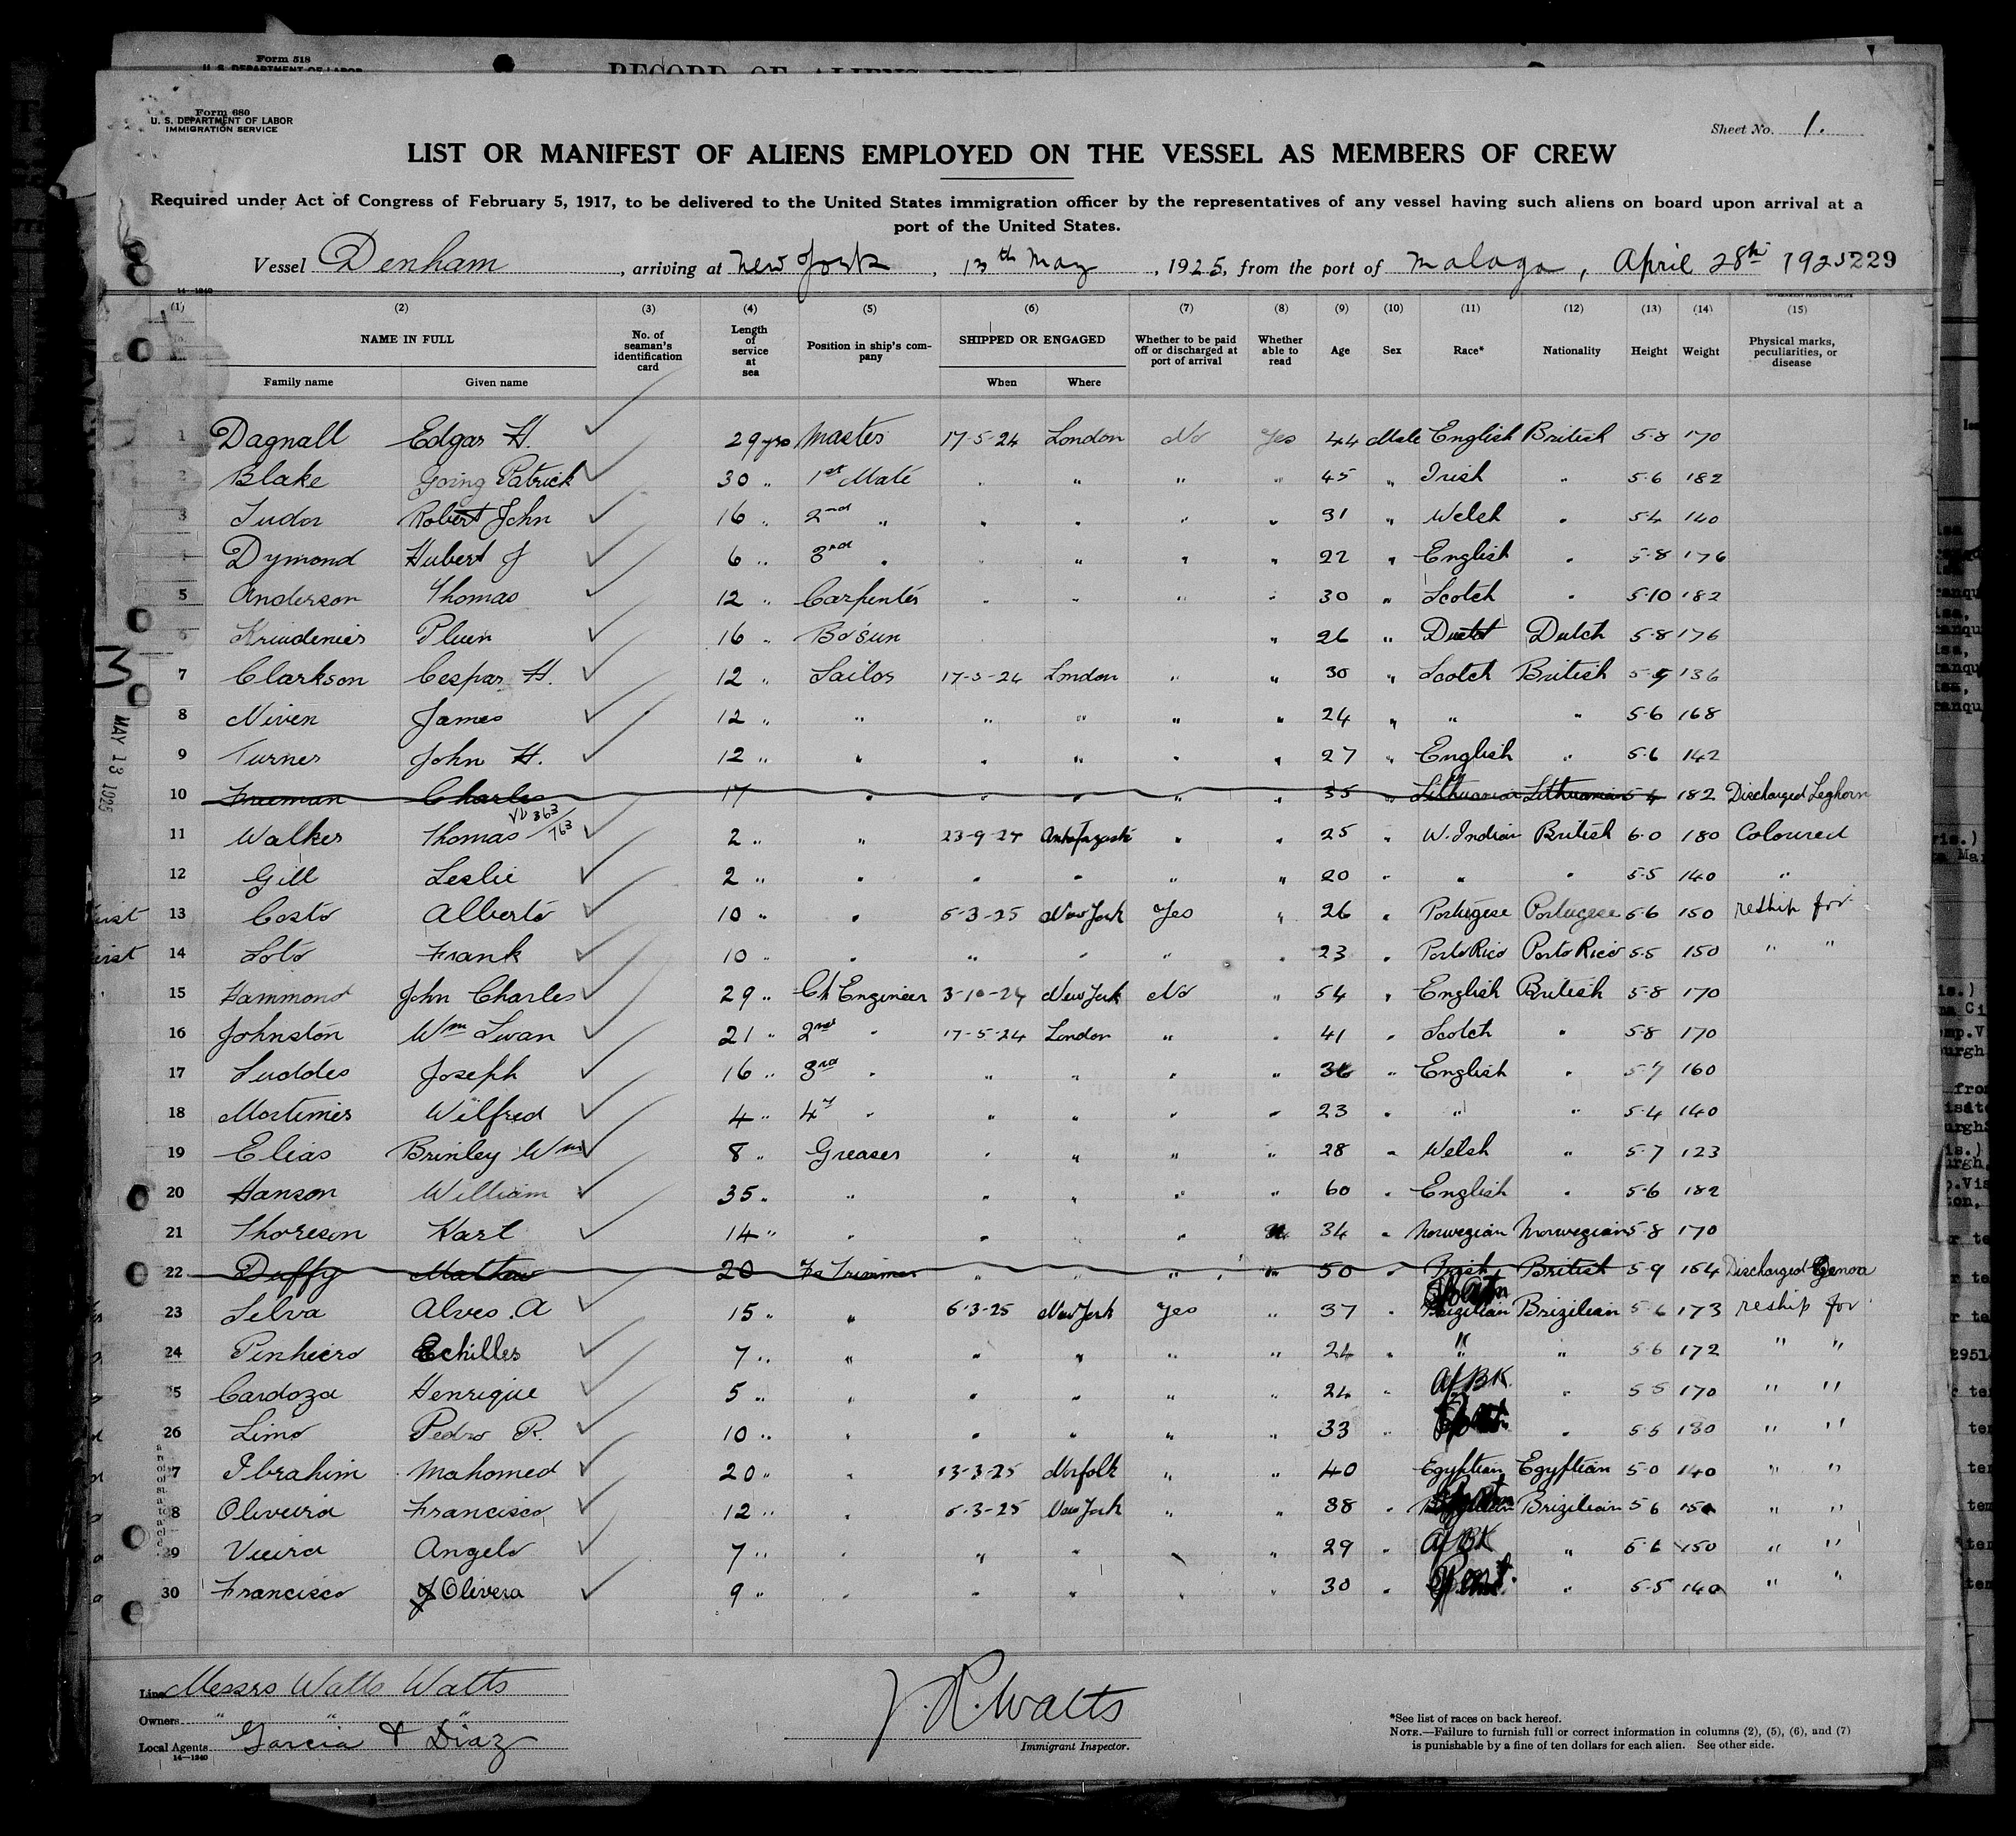 Form 518
U. S. DEPARTMENT OF LABOR
RECORD OF ALIENS HELD
Form 680
U. S. DEPARTMENT OF LABOR
IMMIGRATION SERVICE
Sheet No. 1.
LIST OR MANIFEST OF ALIENS EMPLOYED ON THE VESSEL AS MEMBERS OF CREW
Required under Act of Congress of February 5, 1917, to be delivered to the United States immigration officer by the representatives of any vessel having such aliens on board upon arrival at a
port of the United States.
Vessel Denham, arriving at New York, 13th May, 1925, from the port of Malaga, April 28th 1925 229
14—1240
GOVERNMENT PRINTING OFFICE
(1) (2) (3) (4) (5) (6) (7) (8) (9) (10) (11) (12) (13) (14) (15)
NAME IN FULL Family name Given name No. of seaman's identification card Length of service at sea Position in ship's company SHIPPED OR ENGAGED When Where Whether to be paid off or discharged at port of arrival Whether able to read Age Sex Race* Nationality Height Weight Physical marks, peculiarities, or disease
1 Dagnall Edgar H. 29 yrs Master 17-5-24 London No Yes 44 Male English British 5-8 170
2 Blake Going Patrick 30 " 1st Mate " " " " 45 " Irish " 5-6 182
3 Tudor Robert John 16 " 2nd " " " " " 31 " Welsh " 5-4 140
4 Dymond Hubert J 6 " 3rd " " " " " 22 " English " 5-8 176
5 Anderson Thomas 12 " Carpenter " " " " 30 " Scotch " 5-10 182
6 Pluen 16 " Bo'sun " 26 " Dutch Dutch 5-8 176
7 Clarkson Cespar H. 12 " Sailor 17-5-24 London " " 30 " Scotch British 5-9 136
8 Niven James 12 " " " " " " 24 " " " 5-6 168
9 Turner John H. 12 " " " " " " 27 " English " 5-6 142
10 Freeman Charles 17 " " " " " 35 " Lithuanian Lithuanian 5-4 182 Discharged Leghorn
VB 363/763
11 Walker Thomas 2 " " 23-9-24 Antofagasta " " 25 " W. Indian British 6-0 180 Coloured
12 Gill Leslie 2 " " " " " " 20 " " " 5-5 140 "
13 Costo Alberto 10 " " 5-3-25 New York Yes " 26 " Portugese Portugese 5-6 150 reship for
14 Soto Frank 10 " " " " " " 23 " Porto Rico Porto Rico 5-5 150 " "
15 Hammond John Charles 29 " Ch Engineer 3-10-24 New York No " 54 " English British 5-8 170
16 Johnston Wm Swan 21 " 2nd " 17-5-24 London " " 41 " Scotch " 5-8 170
17 Suddes Joseph 16 " 3rd " " " " " 36 " English " 5-7 160
18 Mortimer Wilfred 4 " 4th " " " " " 23 " " " 5-4 140
19 Elias Brinley Wm 8 " Greaser " " " " 28 " Welsh " 5-7 123
20 Hanson William 35 " " " " " " 60 " English " 5-6 182
21 Thoreson Karl 14 " " " " " 34 " Norwegian Norwegian 5-8 170
22 Duffy Mathew 20 Fr Trimmer " " " " 50 " Irish British 5-9 164 Discharged Genoa
23 Selva Alves. A 15 " " 6-3-25 New York Yes " 37 " Brizilian Brizilian 5-6 173 reship for
24 Pinhiero Echilles 7 " " " " " " 24 " " " 5-6 172 " "
25 Cardoza Henrique 5 " " " " " " 24 " Af BK. " 5-5 170 " "
26 Limo Pedro R. 10 " " " " " " 33 " " 5-5 180 " "
27 Ibrahim Mahomed 20 " " 13-3-25 Norfolk " " 40 Egyptian Egyptian 5-0 140 " "
28 Oliveira Francisco 12 " " 5-3-25 New York " " 38 " Brizilian 5-6 150 " "
29 Vieira Angelo 7 " " " " " " 29 " Af BK " 5-6 150 " "
30 Francisco J Olivera 9 " " " " " " 30 " " 5-5 140 " "
MAY 13 1925
Line Messrs Watts Watts
Owners " " "
Local Agents Garcia & Diaz
14—1240
J. R. Watts
Immigrant Inspector.
*See list of races on back hereof.
NOTE.—Failure to furnish full or correct information in columns (2), (5), (6), and (7)
is punishable by a fine of ten dollars for each alien. See other side.